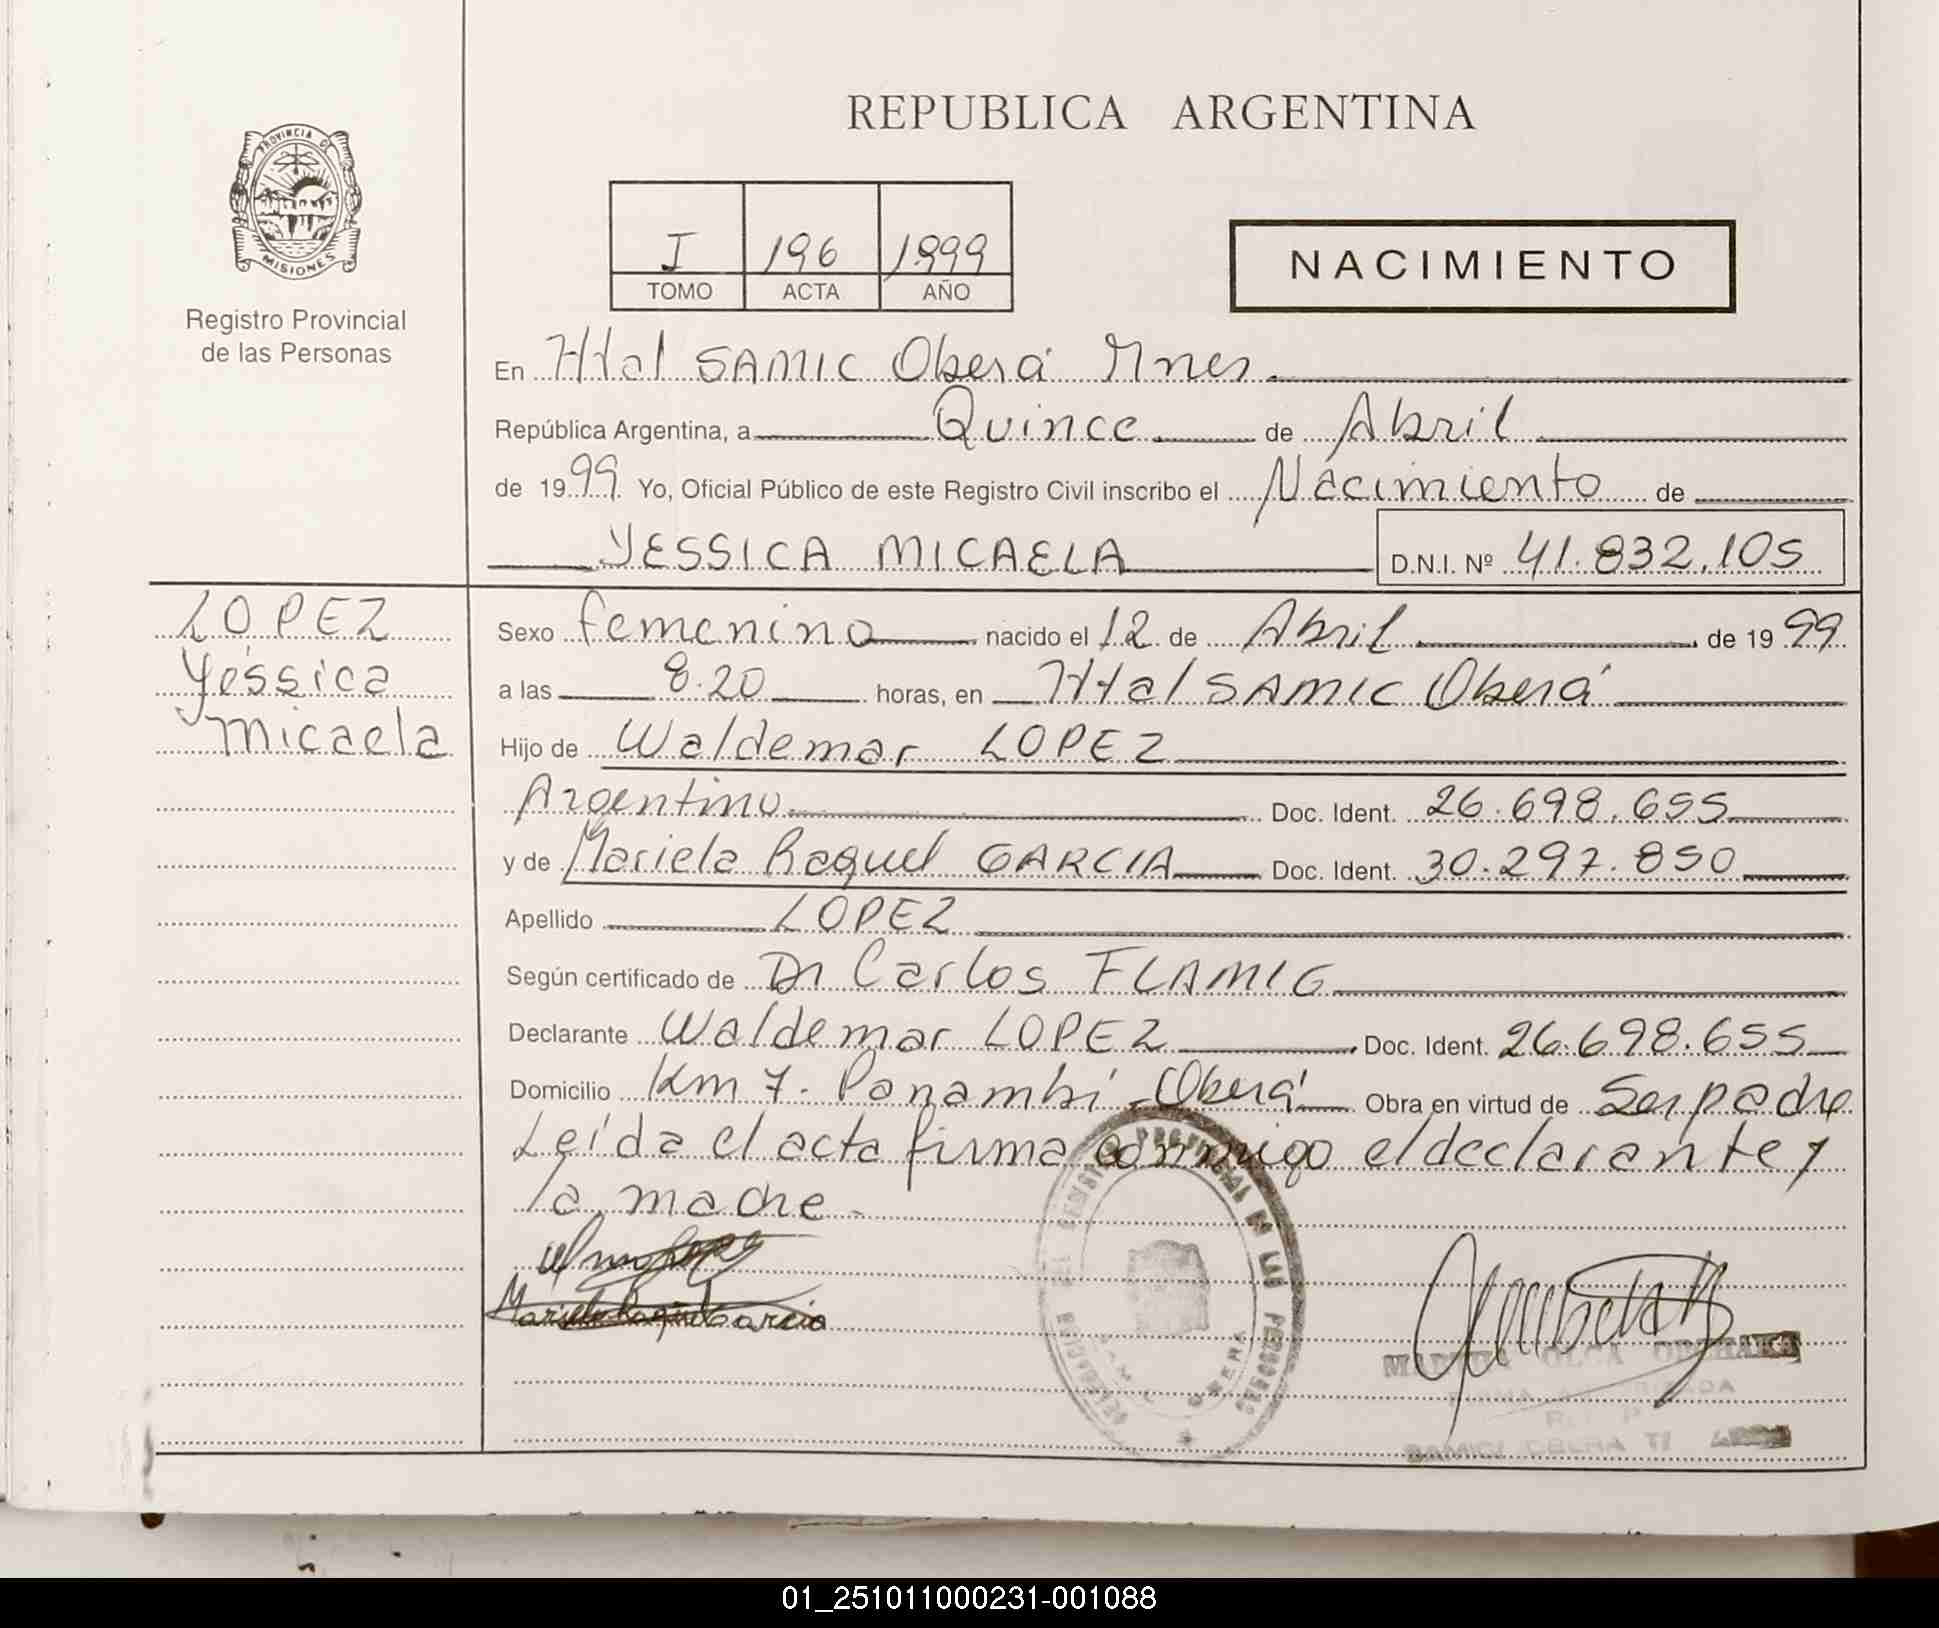 REPUBLICA ARGENTINA
PROVINCIA DE
MISIONES
Registro Provincial
de las Personas
I 196 1999
TOMO ACTA AÑO
NACIMIENTO
En Htal SAMIC Oberá Mnes.
República Argentina, a Quince de Abril
de 1999 Yo, Oficial Público de este Registro Civil inscribo el Nacimiento de
YESSICA MICAELA D.N.I. Nº 41.832.105
LOPEZ
Yessica
Micaela
Sexo femenino nacido el 12 de Abril de 1999
a las 8.20 horas, en Htal SAMIC Oberá
Hijo de Waldemar LOPEZ
Argentino Doc. Ident. 26.698.655
y de Mariela Raquel GARCIA Doc. Ident. 30.297.850
Apellido LOPEZ
Según certificado de Dr Carlos FLAMIG
Declarante Waldemar LOPEZ Doc. Ident. 26.698.655
Domicilio Km 7. Panambí - Oberá Obra en virtud de Ser padre
Leída el acta firma conmigo el declarante y
la madre.
Mariela Raquel Garcia
OLGA
SAMIC OBERA
01_251011000231-001088